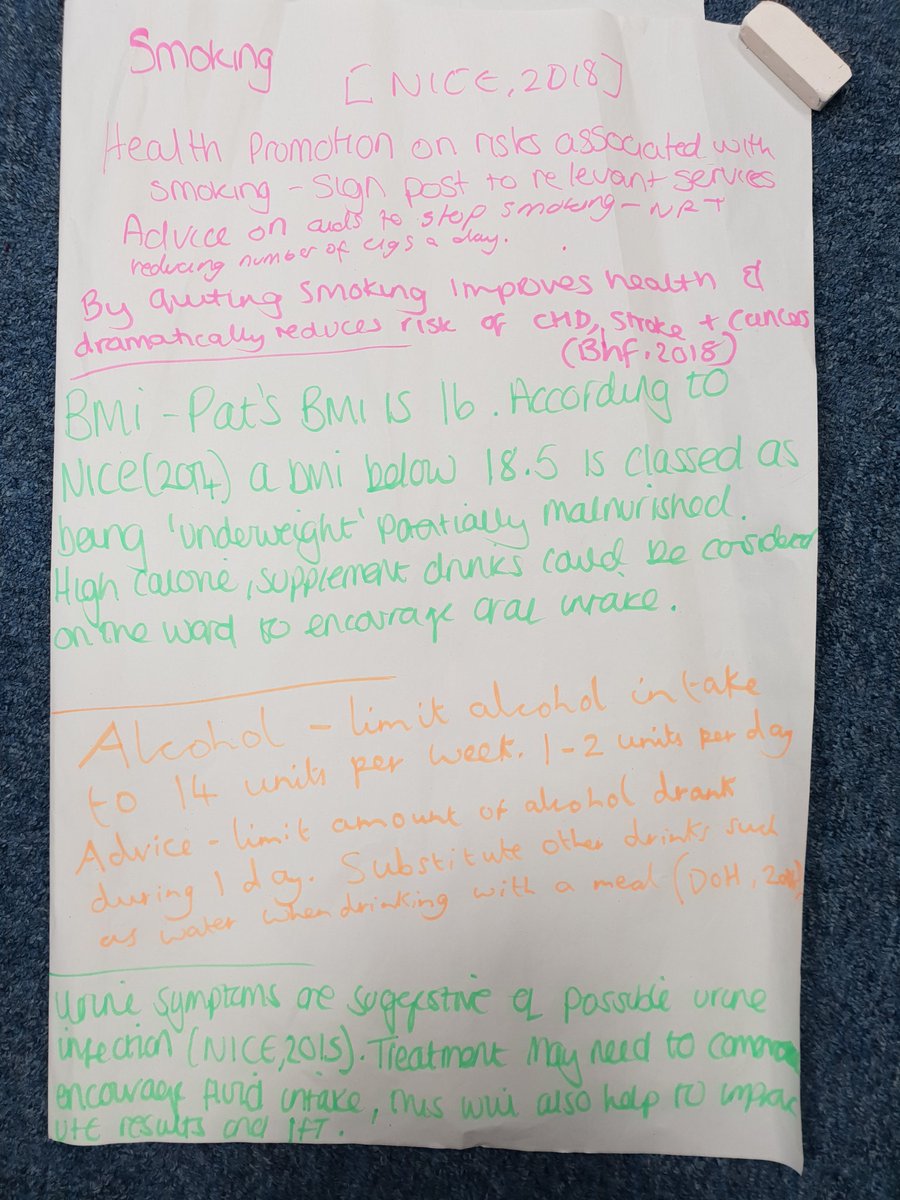 Smoking
[NICE, 2018]
Health Promotion on risks associated with
smoking - Sign post to relevant services
Advice on aids to stop smoking - NRT
reducing number of cigs a day.
By quiting smoking improves health &
dramatically reduces risk of CHD, stroke + Cancers
(Bhf, 2018)
BMi - Pat's BMI is 16. According to
NICE(2014) a bmi below 18.5 is classed as
being 'underweight' Potentially malnurished.
High calorie, supplement drinks could be considered
on the ward to encourage oral intake.
Alcohol - limit alcohol intake
to 14 units per week. 1-2 units per day
Advice - limit amount of alcohol drank
during 1 day. Substitute other drinks such
as water when drinking with a meal (DOH,
Urine symptoms are suggestive of possible urine
infection (NICE, 2015). Treatment may need to
encourage fluid intake, this will also help to improve
U+E results and LFT.